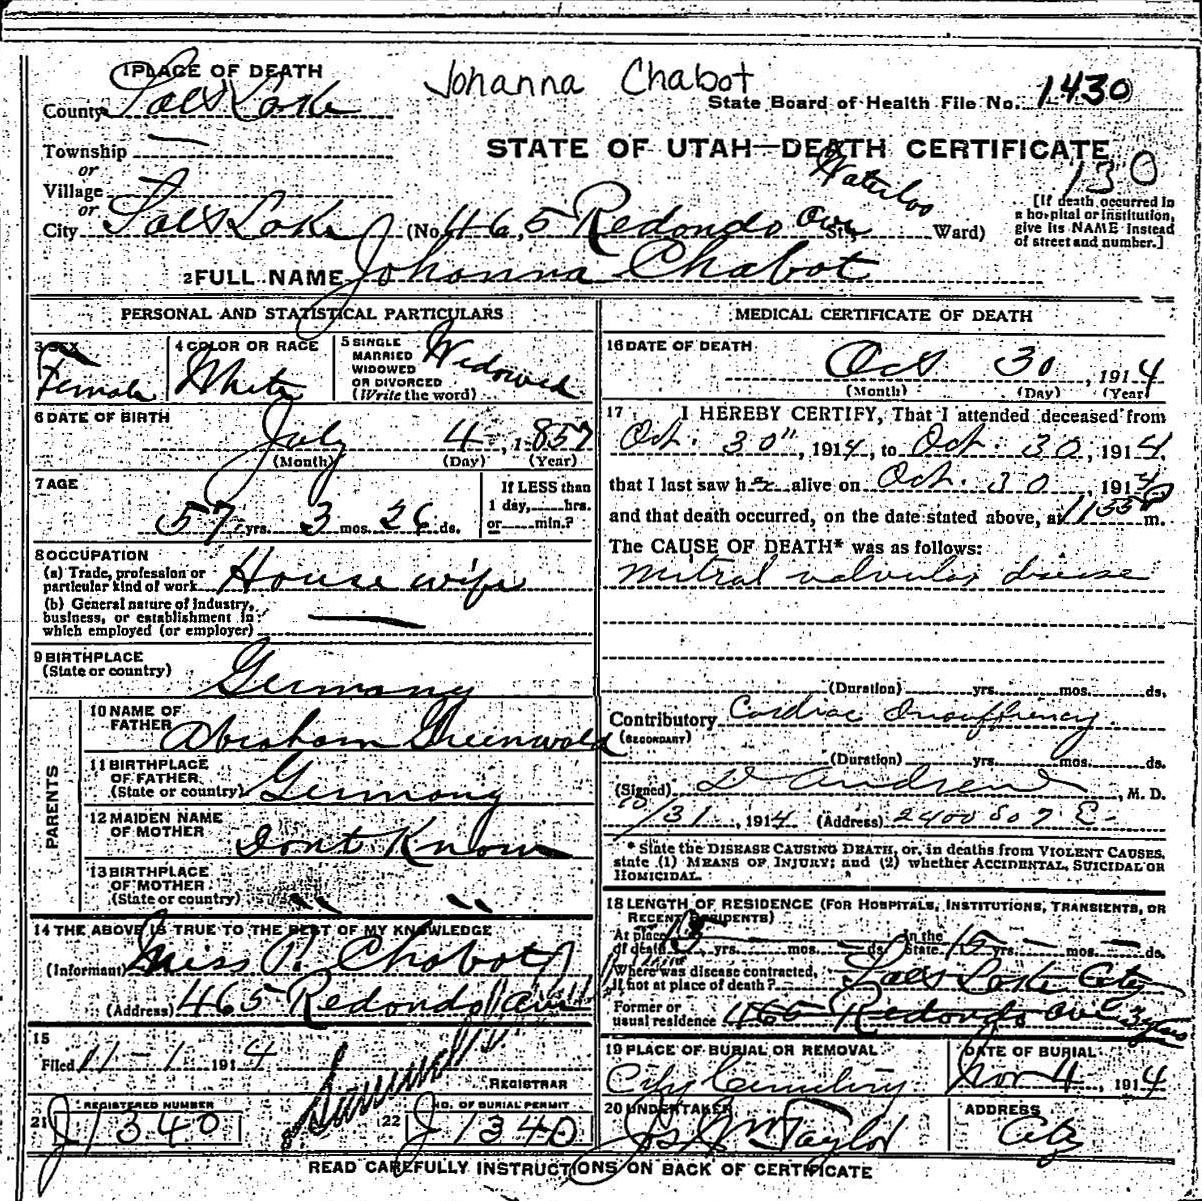 Johanna Chabot
1 PLACE OF DEATH
County Salt Lake
State Board of Health File No. 1430
Township —
or
Village
or
STATE OF UTAH—DEATH CERTIFICATE
130
Waterloo
City Salt Lake (No. 465 Redondo Ave St., Ward)
[If death occurred in
a hospital or institution,
give its NAME instead
of street and number.]
2 FULL NAME Johanna Chabot
PERSONAL AND STATISTICAL PARTICULARS
3 SEX
Female
4 COLOR OR RACE
White
5 SINGLE
MARRIED
WIDOWED
OR DIVORCED
(Write the word)
Widowed
6 DATE OF BIRTH
July 4, 1857
(Month) (Day) (Year)
7 AGE
57 yrs. 3 mos. 26 ds.
If LESS than
1 day, hrs.
or min.?
8 OCCUPATION
(a) Trade, profession or
particular kind of work House wife
(b) General nature of industry,
business, or establishment in
which employed (or employer) —
9 BIRTHPLACE
(State or country)
Germany
PARENTS
10 NAME OF
FATHER
Abraham Greenwald
11 BIRTHPLACE
OF FATHER
(State or country) Germany
12 MAIDEN NAME
OF MOTHER
Dont Know
13 BIRTHPLACE
OF MOTHER
(State or country) " "
14 THE ABOVE IS TRUE TO THE BEST OF MY KNOWLEDGE
(Informant) Miss P. Chabot
(Address) 465 Redondo Ave
15
Filed 11-1 1914
REGISTRAR
REGISTERED NUMBER
21 J1340
NO. OF BURIAL PERMIT
22 J1340
MEDICAL CERTIFICATE OF DEATH
16 DATE OF DEATH
Oct 30, 1914
(Month) (Day) (Year)
17 I HEREBY CERTIFY, That I attended deceased from
Oct. 30", 1914, to Oct. 30, 1914,
that I last saw her alive on Oct. 30 1914
and that death occurred, on the date stated above, at 1155 P m.
The CAUSE OF DEATH* was as follows:
Mitral valvular disease
(Duration) yrs. mos. ds.
Contributory Cardiac Insufficiency
(SECONDARY)
(Duration) yrs. mos. ds.
(Signed) Andrew, M. D.
10/31, 1914 (Address) 2400 So 7 E.
* State the DISEASE CAUSING DEATH, or, in deaths from VIOLENT CAUSES,
state (1) MEANS OF INJURY; and (2) whether ACCIDENTAL, SUICIDAL OR
HOMICIDAL.
18 LENGTH OF RESIDENCE (FOR HOSPITALS, INSTITUTIONS, TRANSIENTS, OR
RECENT RESIDENTS)
At place
of death yrs. mos. ds. In the
State 15 yrs. — mos. — ds.
Where was disease contracted,
if not at place of death? Salt Lake City
Former or
usual residence 465 Redondo Ave 3 yrs
19 PLACE OF BURIAL OR REMOVAL
City Cemetery
DATE OF BURIAL
Nov 4, 1914
20 UNDERTAKER
Jos Wm Taylor
ADDRESS
City
READ CAREFULLY INSTRUCTIONS ON BACK OF CERTIFICATE